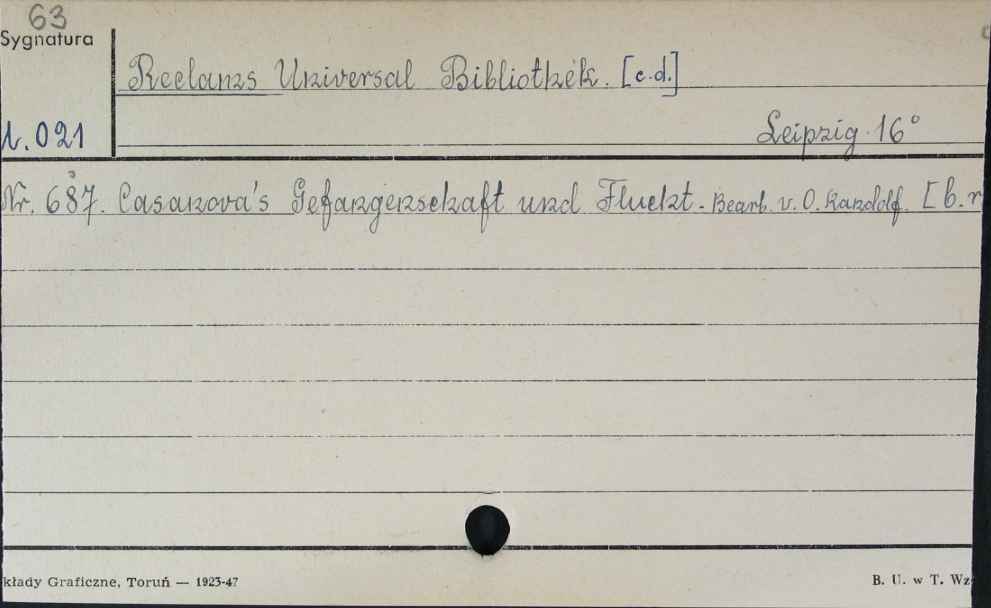 63
Sygnatura
Reclams Universal Bibliothek. [c.d.]
021
Leipzig 16°
Nr. 687. Casanova's Gefangenschaft und Flucht. Bearb. v. O. Randolf. [b.r
kłady Graficzne, Toruń — 1923-47
B. U. w T. Wz